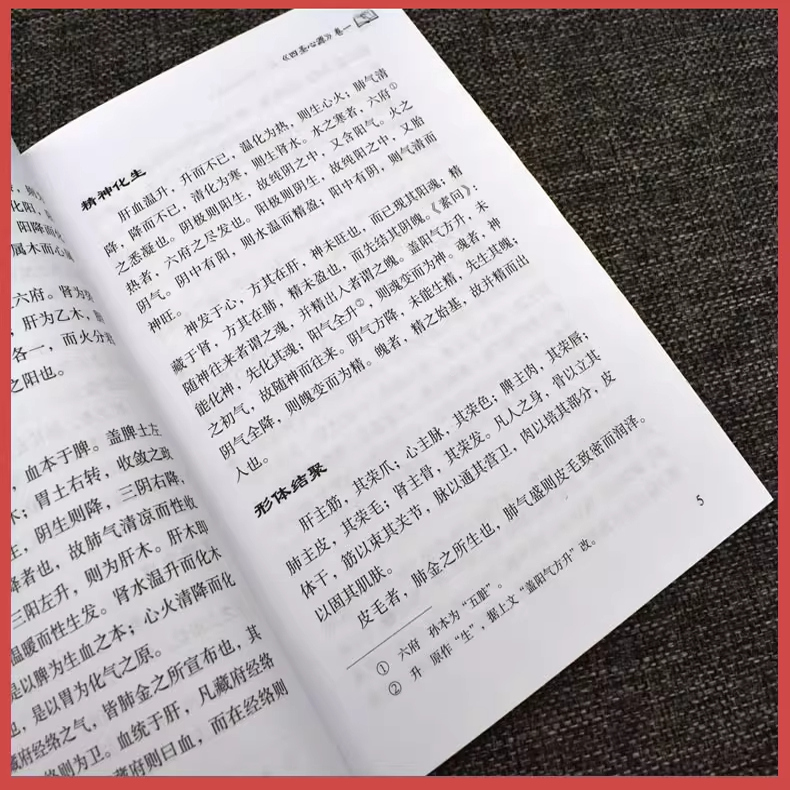 化阳，
阳降而化
属木而心属
六府。肾为癸
，肝为乙木，
各一，而火分君
之阳也。
，血本于脾。盖脾土左
；胃土右转，收敛之政
，阴生则降，三阴右降，
降者也，故肺气清凉而性收
三阳左升，则为肝木。肝木即
温暖而性生发。肾水温升而化木
是以脾为生血之本；心火清降而化
也，是以胃为化气之原。
藏府经络之气，皆肺金之所宣布也，其
络则为卫。血统于肝，凡藏府经络
藏府则曰血，而在经络则
《四圣心源》卷一
精神化生
肝血温升，升而不已，温化为热，则生心火；肺气清
降，降而不已，清化为寒，则生肾水。水之寒者，六府①
之悉凝也。阴极则阳生，故纯阴之中，又含阳气。火之
热者，六府之尽发也。阳极则阴生，故纯阳之中，又胎
阴气。阴中有阳，则水温而精盈；阳中有阴，则气清而
神旺。
神发于心，方其在肝，神未旺也，而已现其阳魂；精
藏于肾，方其在肺，精未盈也，而先结其阴魄。《素问》：
随神往来者谓之魂，并精出入者谓之魄。盖阳气方升，未
能化神，先化其魂；阳气全升②，则魂变而为神。魂者，神
之初气，故随神而往来。阴气方降，未能生精，先生其魄；
阴气全降，则魄变而为精。魄者，精之始基，故并精而出
入也。
形体结聚
肝主筋，其荣爪；心主脉，其荣色；脾主肉，其荣唇；
肺主皮，其荣毛；肾主骨，其荣发。凡人之身，骨以立其
体干，筋以束其关节，脉以通其营卫，肉以培其部分，皮
以固其肌肤。
皮毛者，肺金之所生也，肺气盛则皮毛致密而润泽。
① 六府 孙本为“五脏”。
② 升 原作“生”，据上文“盖阳气方升”改。
5